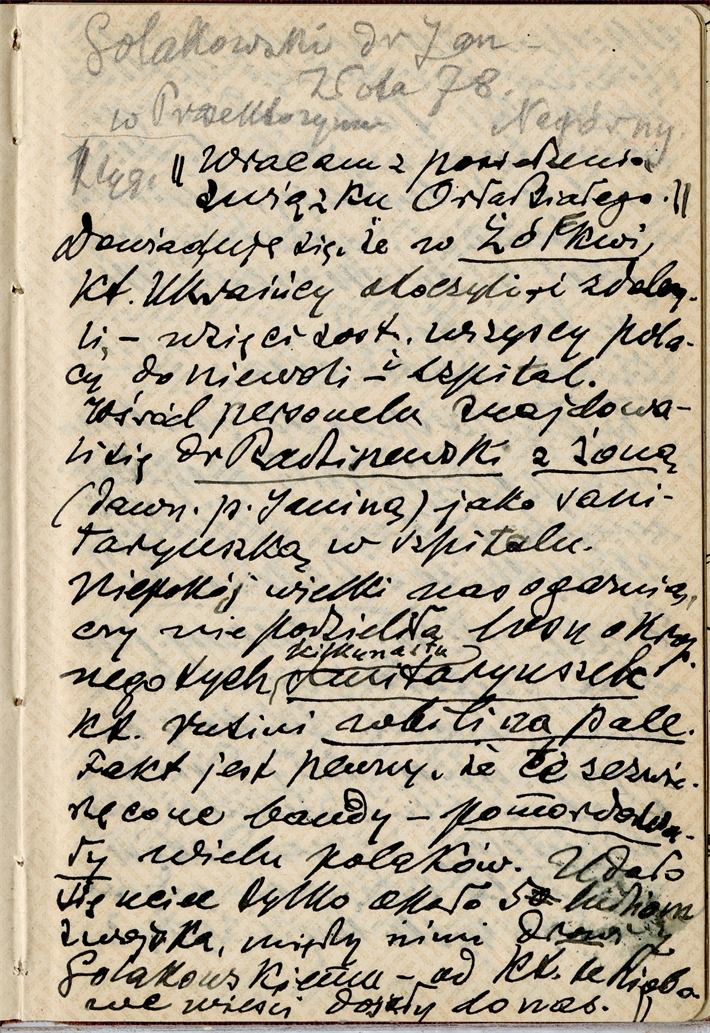 Golakowski dr Jan –
Złota 78.
w Prosektorynm Negórny.
"Wracam z posiedzenia
związku Orła Białego."
Dowiaduję się, że w Żółkwi,
kt. Ukraińcy otoczyli i zdoby-
li, – wzięci zost. wszyscy pola-
cy do niewoli – i szpital.
Wśród personelu znajdowa-
li się dr Radziszewski z żoną
(dawn. p. Janiną) jako sani-
taryuszką w szpitalu.
Niepokój wielki nas ogarnia,
czy nie podzieliła losu okrop-
nego tych kilkunastu sanitaryuszek
kt. rusini wbili na pale.
Fakt jest pewny, że te zezwie-
rzęcone bandy – pomordowa-
ły wielu polaków. Udało
się uciec tylko około 50 ludziom
z wojska, między nimi drowi
Golakowskiemu – od kt. te hiobo-
we wieści doszły do nas."